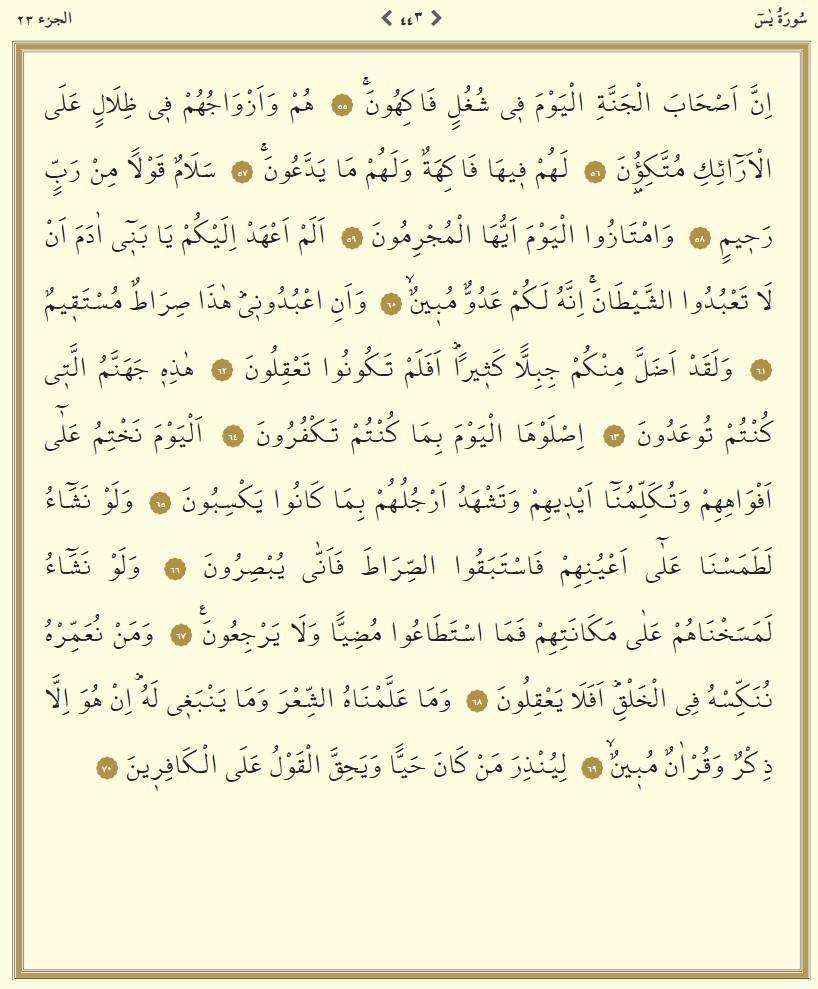 سُورَةُ يٰسٓ ٤٤٣ الجزء ٢٣
اِنَّ اَصْحَابَ الْجَنَّةِ الْيَوْمَ ف۪ي شُغُلٍ فَاكِهُونَۚ ٥٥ هُمْ وَاَزْوَاجُهُمْ ف۪ي ظِلَالٍ عَلَى
الْاَرَٓائِكِ مُتَّكِؤُ۫نَ ٥٦ لَهُمْ ف۪يهَا فَاكِهَةٌ وَلَهُمْ مَا يَدَّعُونَۚ ٥٧ سَلَامٌ قَوْلًا مِنْ رَبٍّ
رَح۪يمٍ ٥٨ وَامْتَازُوا الْيَوْمَ اَيُّهَا الْمُجْرِمُونَ ٥٩ اَلَمْ اَعْهَدْ اِلَيْكُمْ يَا بَن۪ٓي اٰدَمَ اَنْ
لَا تَعْبُدُوا الشَّيْطَانَۚ اِنَّهُ لَكُمْ عَدُوٌّ مُب۪ينٌۙ ٦٠ وَاَنِ اعْبُدُون۪يۜ هٰذَا صِرَاطٌ مُسْتَق۪يمٌ
٦١ وَلَقَدْ اَضَلَّ مِنْكُمْ جِبِلًّا كَث۪يرًاۜ اَفَلَمْ تَكُونُوا تَعْقِلُونَ ٦٢ هٰذِه۪ جَهَنَّمُ الَّت۪ي
كُنْتُمْ تُوعَدُونَ ٦٣ اِصْلَوْهَا الْيَوْمَ بِمَا كُنْتُمْ تَكْفُرُونَ ٦٤ اَلْيَوْمَ نَخْتِمُ عَلٰٓى
اَفْوَاهِهِمْ وَتُكَلِّمُنَٓا اَيْد۪يهِمْ وَتَشْهَدُ اَرْجُلُهُمْ بِمَا كَانُوا يَكْسِبُونَ ٦٥ وَلَوْ نَشَٓاءُ
لَطَمَسْنَا عَلٰٓى اَعْيُنِهِمْ فَاسْتَبَقُوا الصِّرَاطَ فَاَنّٰى يُبْصِرُونَ ٦٦ وَلَوْ نَشَٓاءُ
لَمَسَخْنَاهُمْ عَلٰى مَكَانَتِهِمْ فَمَا اسْتَطَاعُوا مُضِيًّا وَلَا يَرْجِعُونَ۟ ٦٧ وَمَنْ نُعَمِّرْهُ
نُنَكِّسْهُ فِي الْخَلْقِۜ اَفَلَا يَعْقِلُونَ ٦٨ وَمَا عَلَّمْنَاهُ الشِّعْرَ وَمَا يَنْبَغ۪ي لَهُۜ اِنْ هُوَ اِلَّا
ذِكْرٌ وَقُرْاٰنٌ مُب۪ينٌۙ ٦٩ لِيُنْذِرَ مَنْ كَانَ حَيًّا وَيَحِقَّ الْقَوْلُ عَلَى الْكَافِر۪ينَ ٧٠